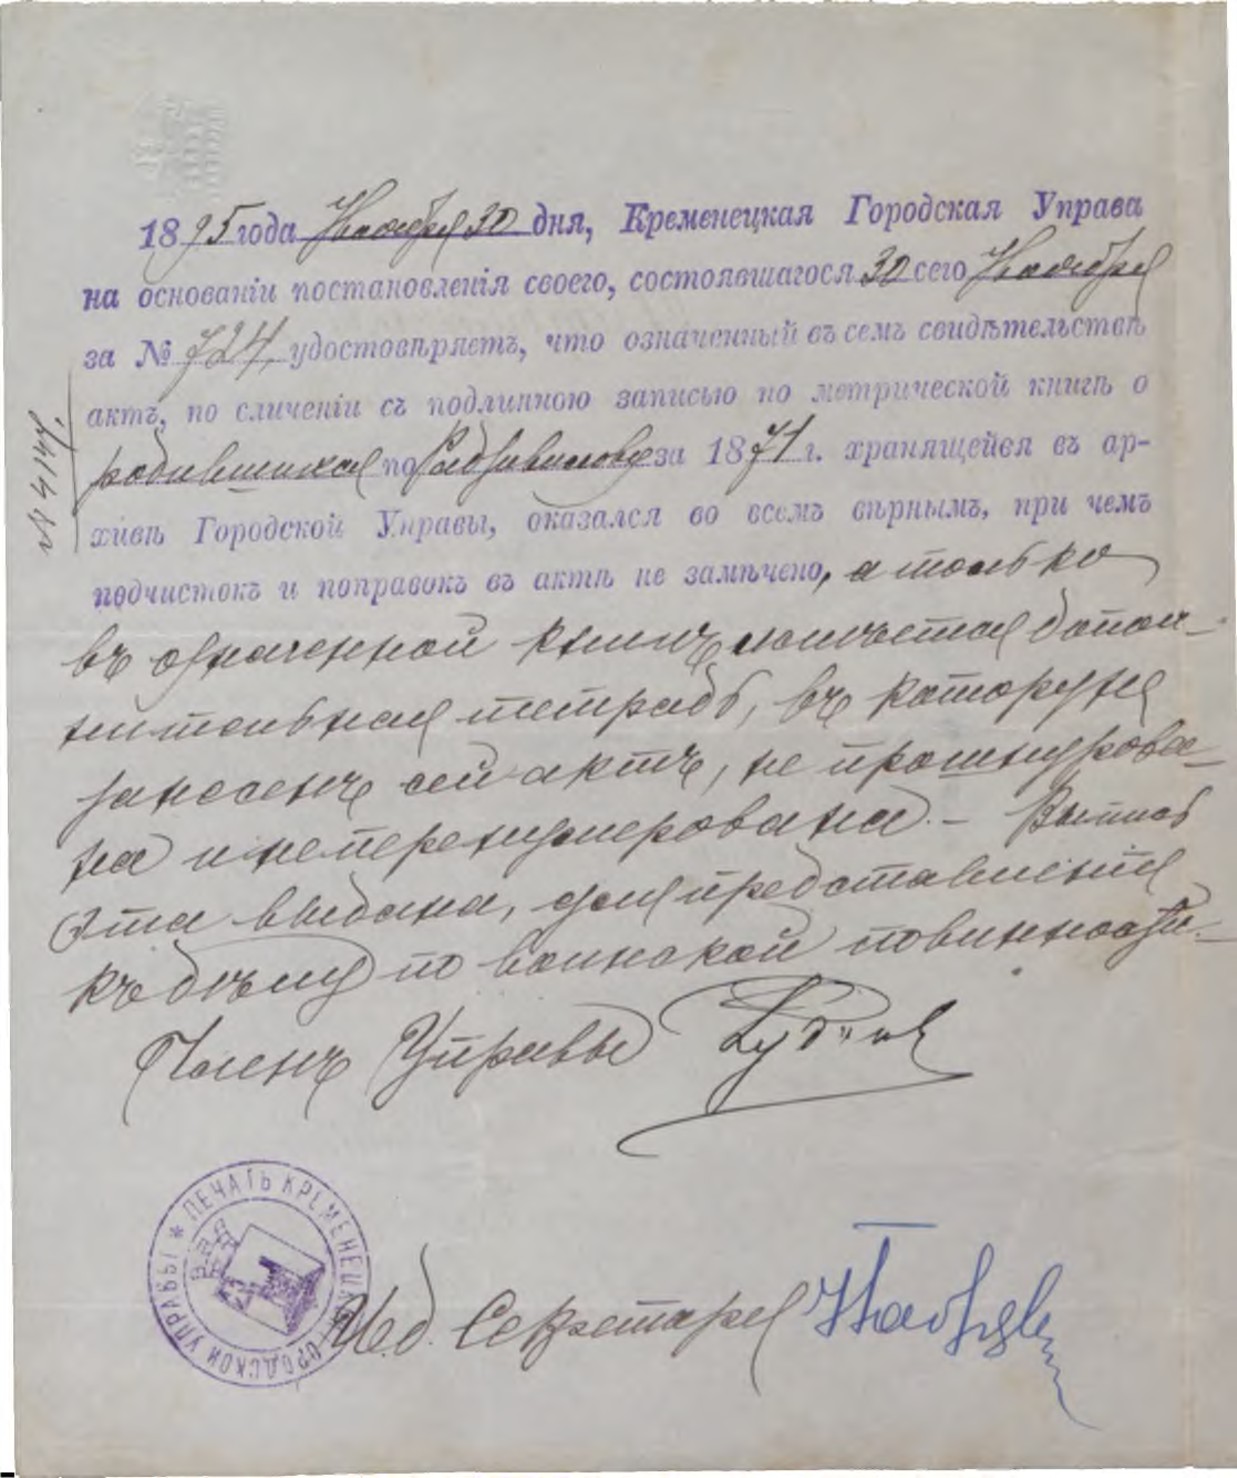 1895 года Ноября 30 дня, Кременецкая Городская Управа
на основаніи постановленія своего, состоявшагося 30 сего Ноября
за № 724, удостовѣряетъ, что означенный въ семъ свидѣтельствѣ
актъ, по сличеніи съ подлинною записью по метрической книгѣ о
родившихся по Радзивилову за 1871 г. хранящейся въ ар-
хивѣ Городской Управы, оказался во всемъ вѣрнымъ, при чемъ
подчистокъ и поправокъ въ актѣ не замѣчено, а только
въ означенной книгѣ имѣется допол-
нительная тетрадь, въ которую
занесенъ сей актъ, не прошнурова-
на и неперенумерована. – Выпись
эта выдана, для представленія
къ дѣлу по воинской повинности.
Членъ Управы
И.д. Секретаря
№ 4144.
* ПЕЧАТЬ КРЕМЕНЕЦКОЙ ГОРОДСКОЙ УПРАВЫ